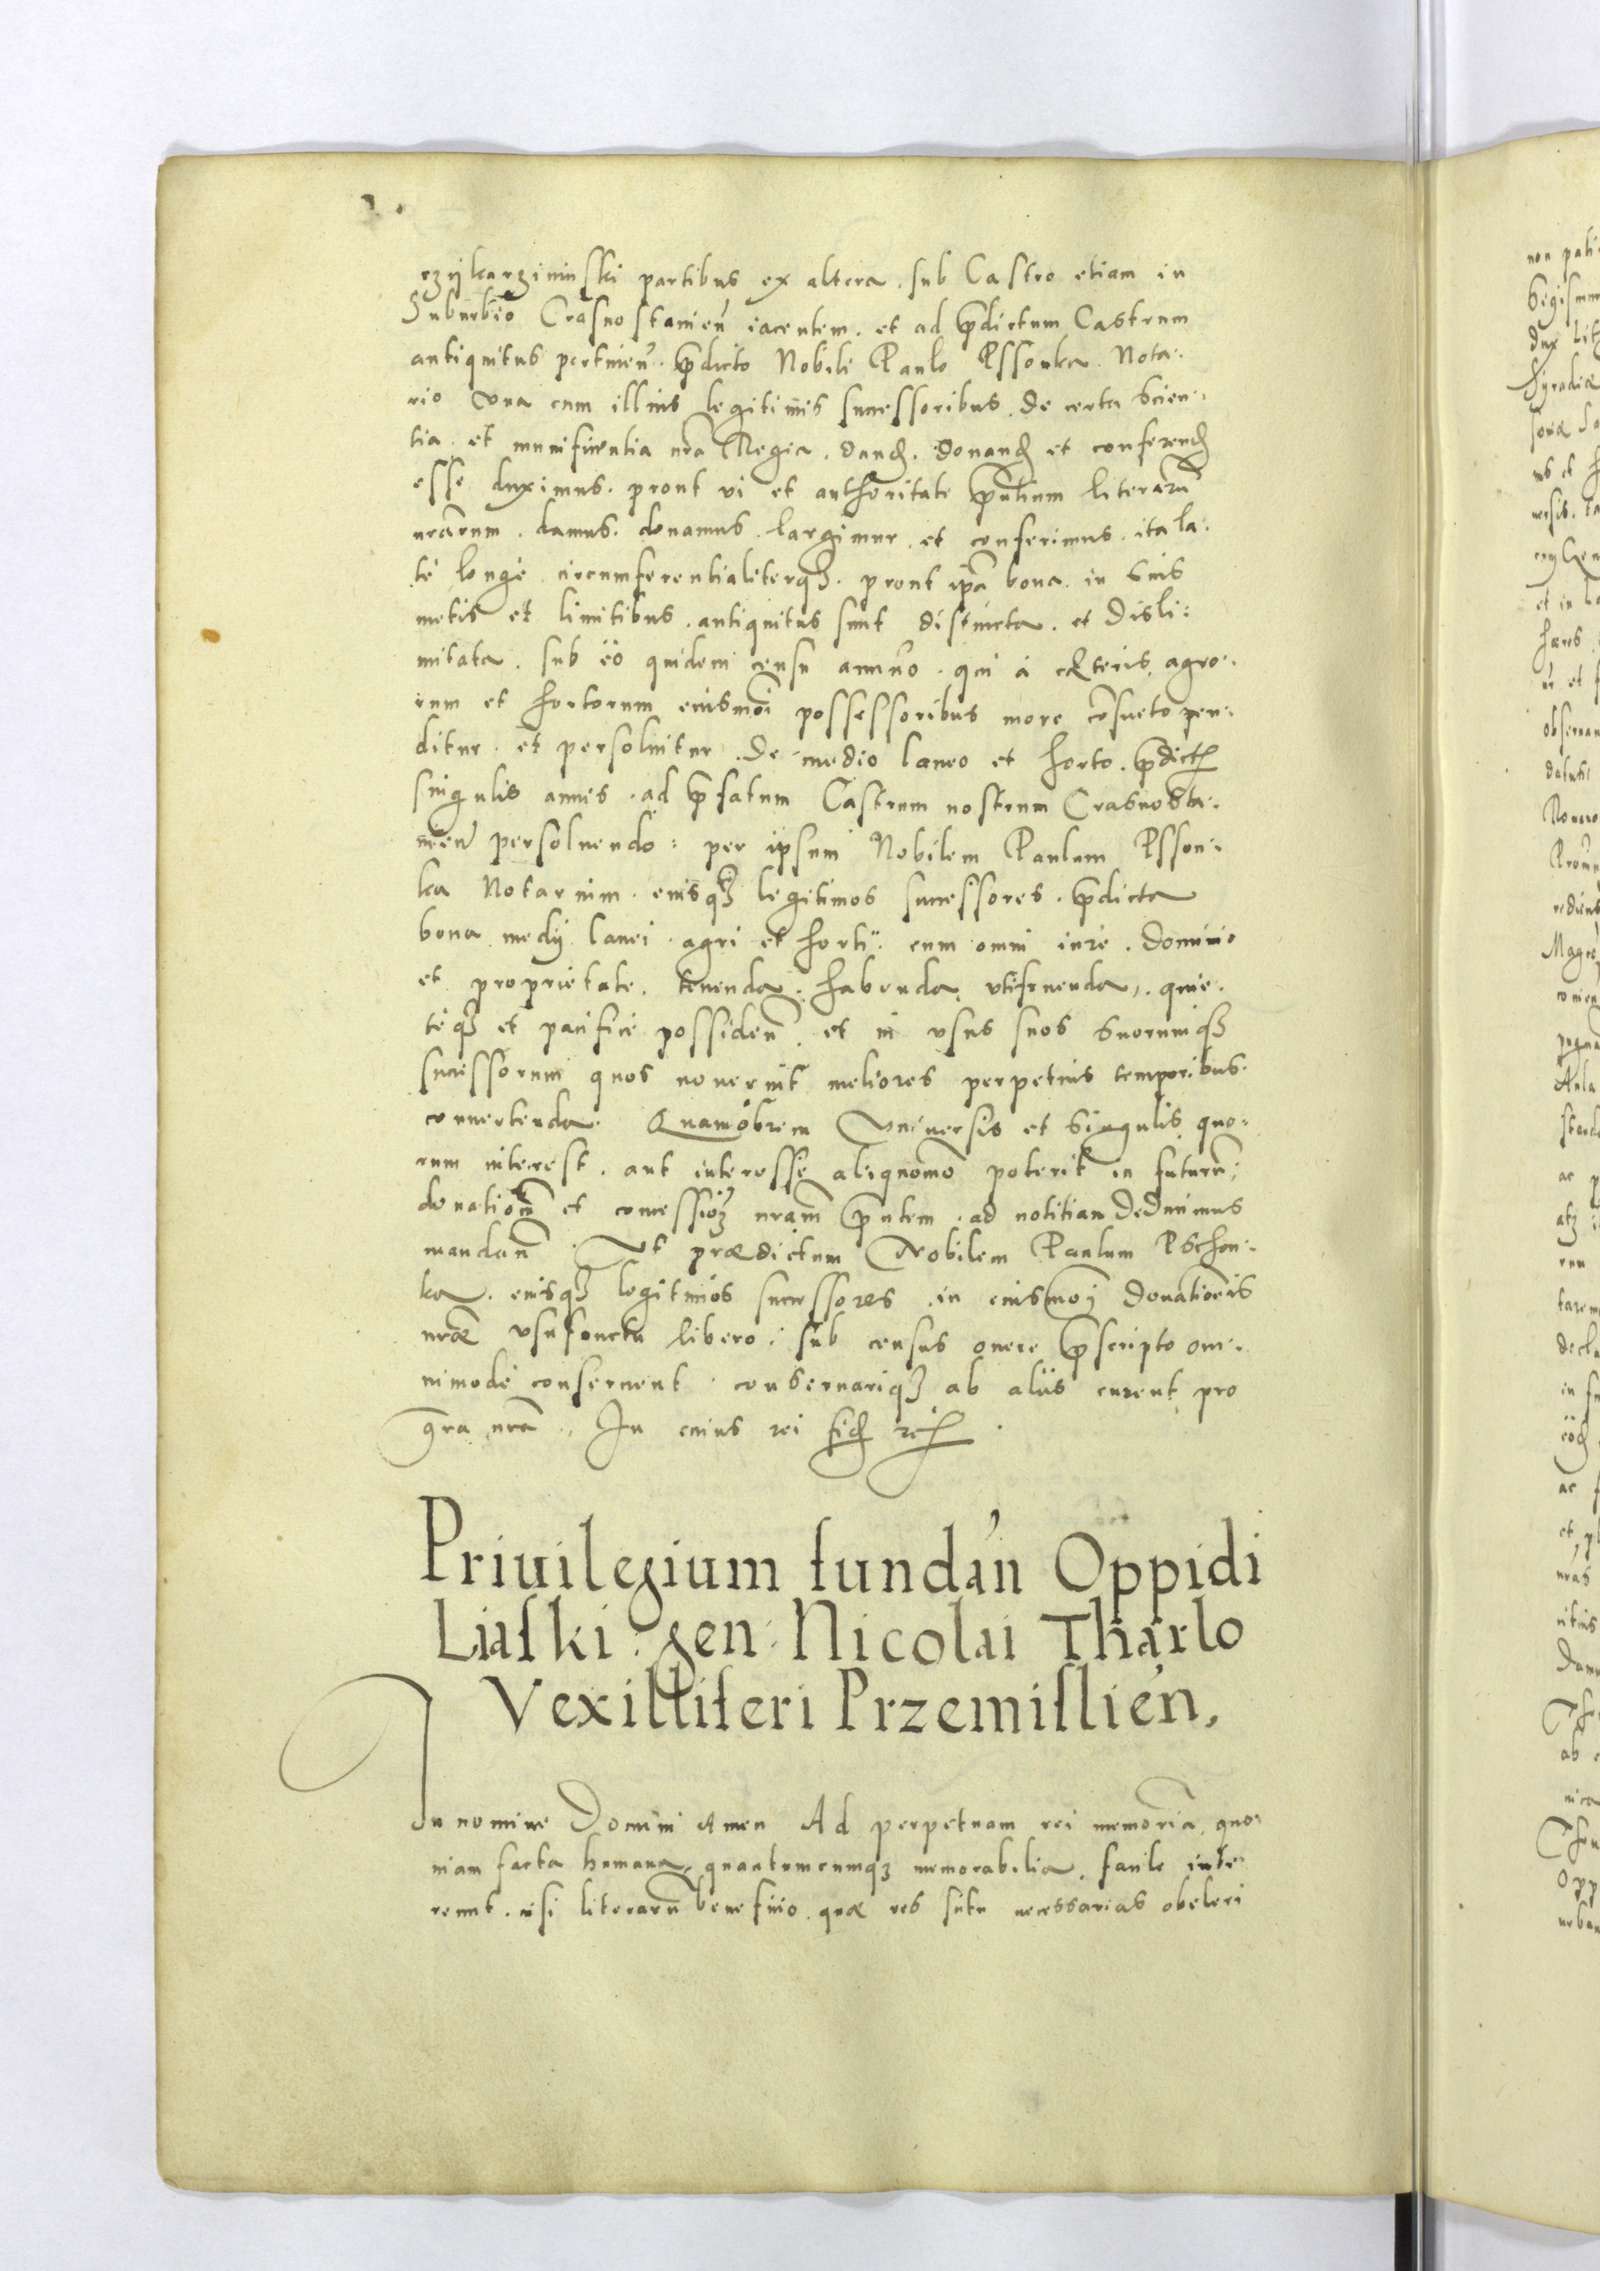 rzijkarziminski partibus ex altera. sub Castro etiam in
Suburbio Crasnostamień iacentem. et ad p̄dictum Castrum
antiquitus pertineñ. p̄dicto Nobili Paulo Pssonka Nota:
rio vna cum illius legitimis successoribus. de certa Scien:
tia. et munificentia nr̄a Regia. dand. donand et conferend
esse duximus. prout vi et authoritate p̄ntium literarū
nr̄arum. damus. donamus. largimur. et conferimus. ita la:
té longè circumferentialiterq3. prout ip̄a bona. in Suis
metis et limitibus. antiquitus sunt distincta. et disli:
mitata. sub eo quidem censu annuo. qui à cæteris, agro:
rum et hortorum eiusmōi possessoribus more cōsueto pen:
ditur. et persoluitur. De medio laneo et horto. p̄dict
singulis annis. ad p̄fatum Castrum nostrum Crasnosta:
mień persoluendo: per ipsum Nobilem Paulum Psson:
ka Notarium. eiusq3 legitimos successores. p̄dicta
bona medij lanei agri et horti. cum omni iure. dominio
et proprietate. tenenda. habenda, vtifruenda,. quie:
teq3 et pacificè possideñ. et in vsus suos Suorumq3
successorum quos nouerint meliores perpetuis temporibus.
conuertenda. Quamobrem Vniuersis et Singulis, quo:
rum interest. aut interesse aliquomō poterit in futurū,
donationē et concessiō3 nr̄am p̄ntem. ad notitiam deducimus
mandañ. Vt prædictum Nobilem Paulum Pschon:
ka. eiusq3 legitimos successores. in eiusmōj donationis
nr̄æ vsufructu libero. sub census onere p̄scripto om:
nimodè conseruent. conseruariq3 ab aliis curent, pro
gr̄a nr̄a. In cuius rei fid etc.
Priuilegium fundań Oppidi
Liaſki: gen: Nicolai Tharlo
Vexilliferi Przemiſlień,
In nomine Domini Amen Ad perpetuam rei memoriā, quo:
niam facta humana, quantumcumq3 memorabilia, facile inte:
reunt. nisi literarū beneficio. quæ res situ necessarias obeleri